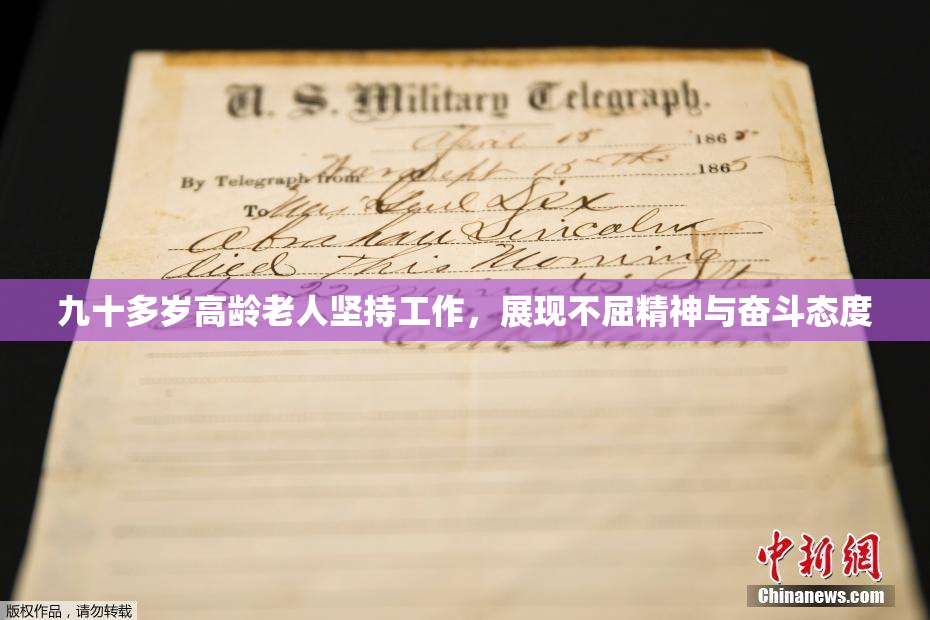 U. S. Military Telegraph.
April 15 1865
By Telegraph from War Dept 15th 1865
To Maj Genl Dix
Abraham Lincoln
died this Morning
at 22 minutes after
九十多岁高龄老人坚持工作，展现不屈精神与奋斗态度
中新网
Chinanews.com
版权作品，请勿转载